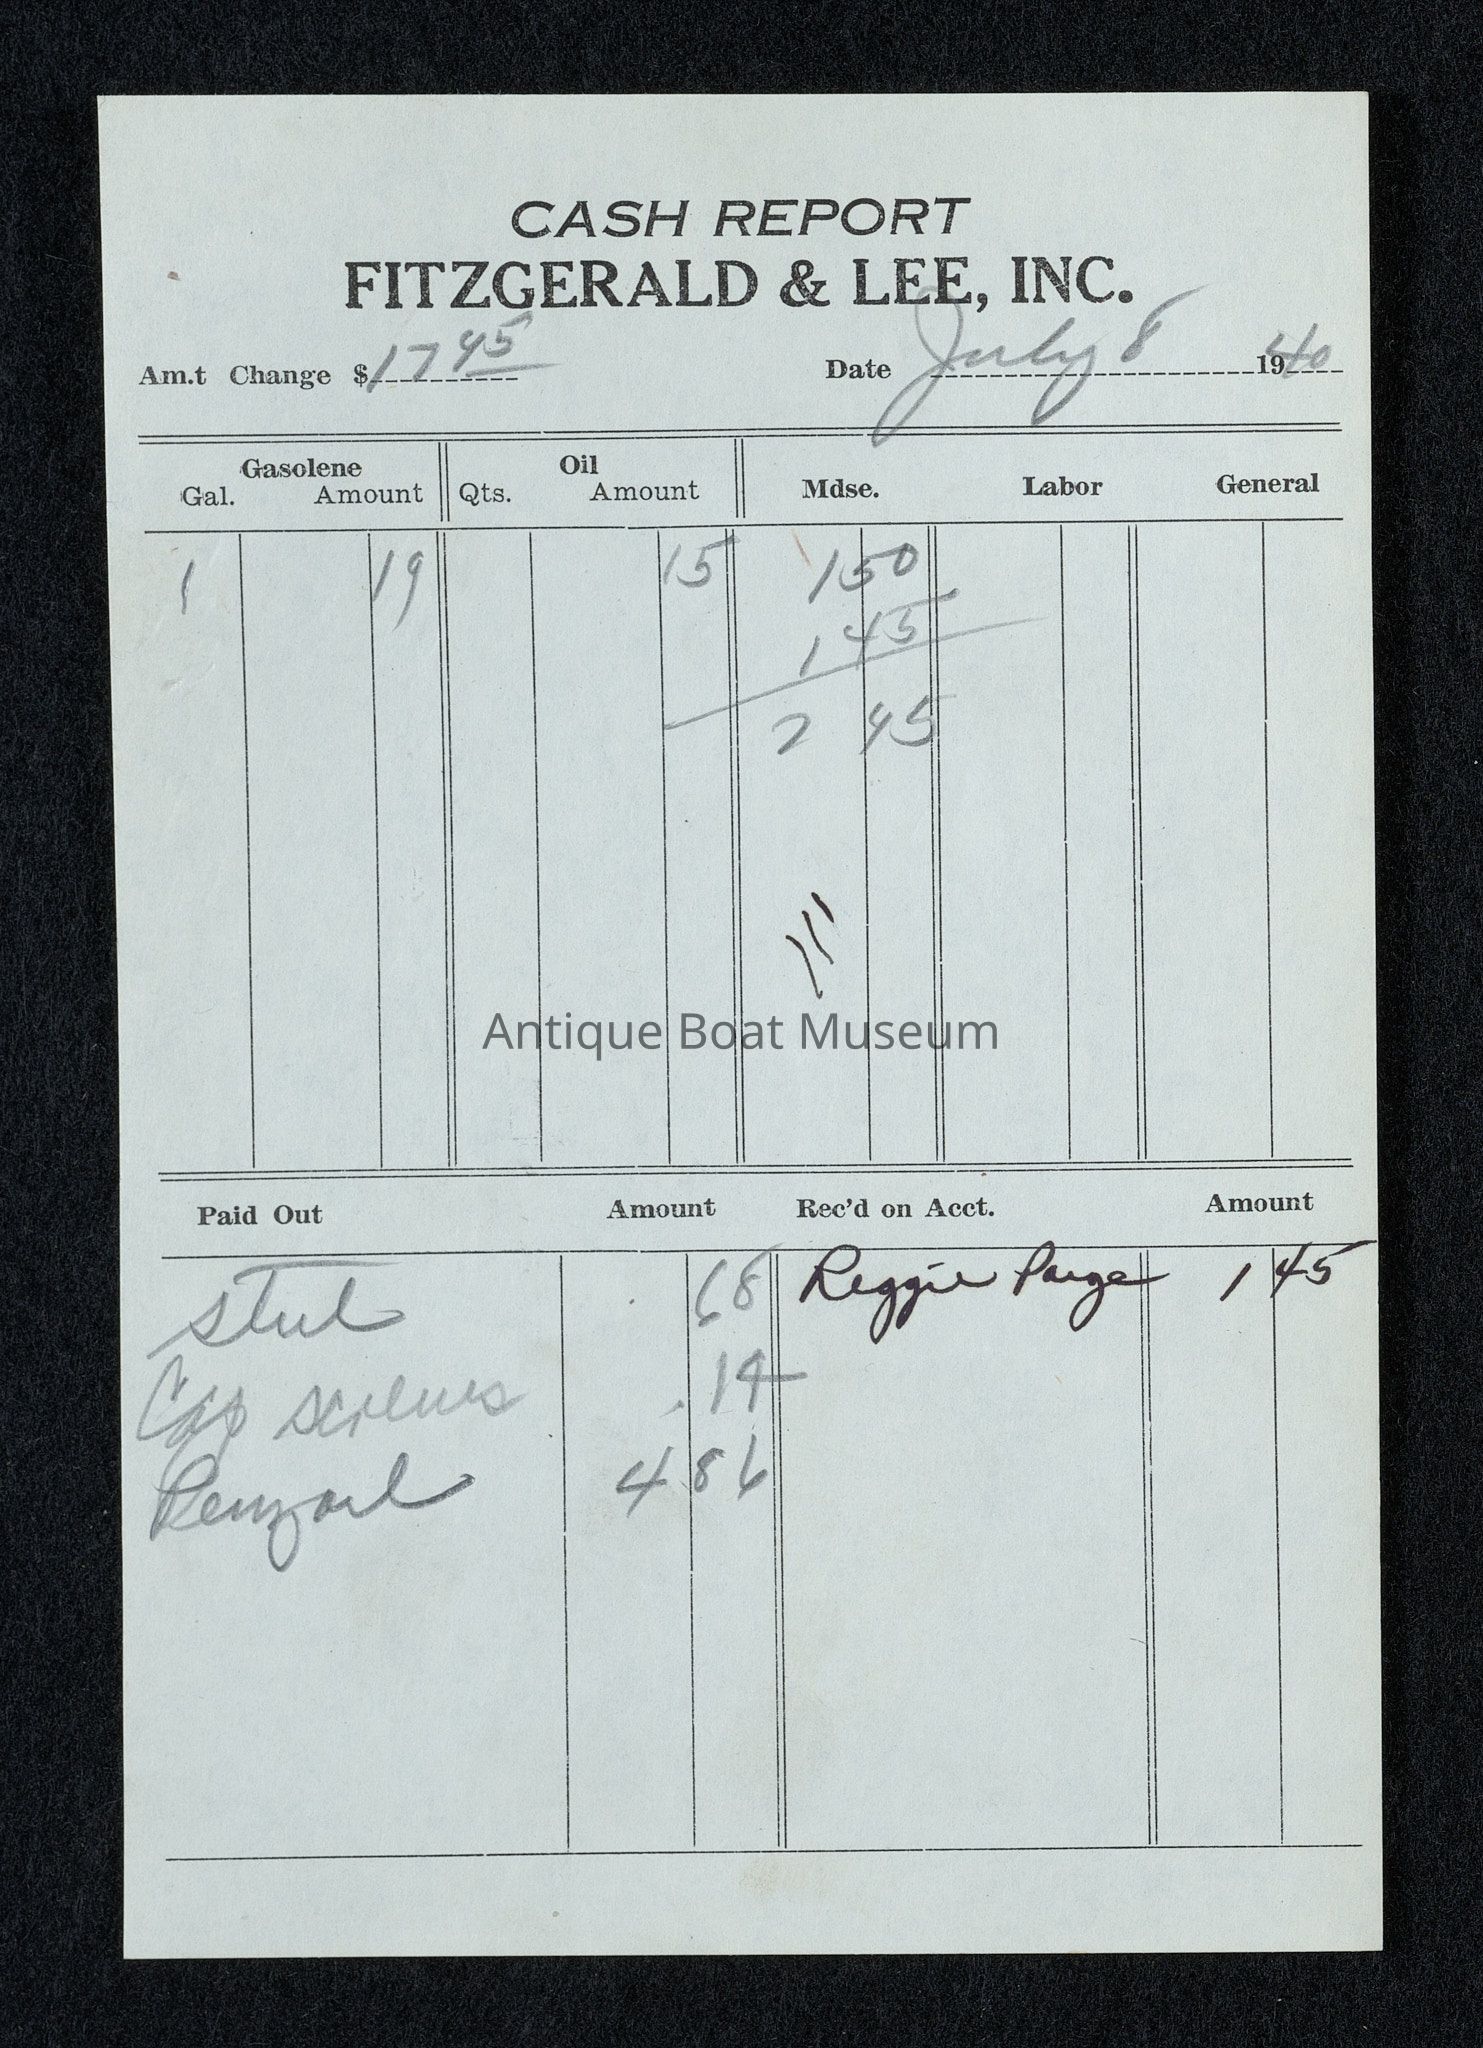 CASH REPORT
FITZGERALD & LEE, INC.
Am.t Change $ 17 45 Date July 8 1940
Gasolene Oil
Gal. Amount Qts. Amount Mdse. Labor General
1 19 15 150
1 45
2 45
Antique Boat Museum
Paid Out Amount Rec'd on Acct. Amount
68 Reggie Paige 1 45
Cap screws .14
4 86